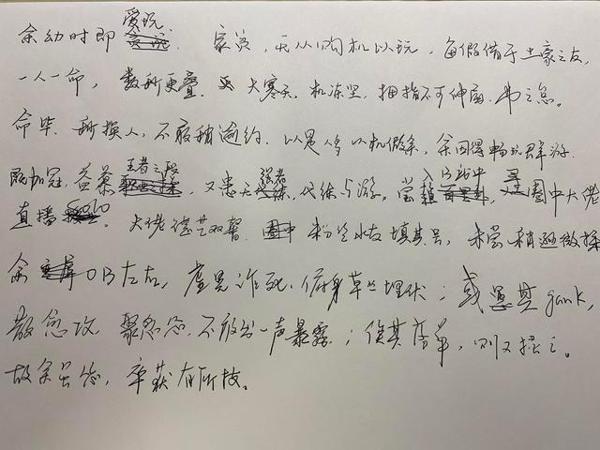 余幼时即爱玩。家贫,无从购机以玩,每假借于土豪之友,
一人一命,数所更叠。天大寒,机冻坚,拇指不可伸屈,弗之怠。
命毕,即换人,不敢稍逾约。以是人多以机假余,余因得畅玩群游。
既加冠,益慕王者之段,又患无强者代练与游,尝入百里中寻圈中大佬
直播solo。大佬德艺双馨,粉丝水友填其号,未尝稍逊微操
余OB左右,虚晃诈死,俯身草丛埋伏;或遇其gank,
敌愈攻,愈怂,不敢出一声暴露;俟其落单,则又
故余虽怂,卒获有所技。